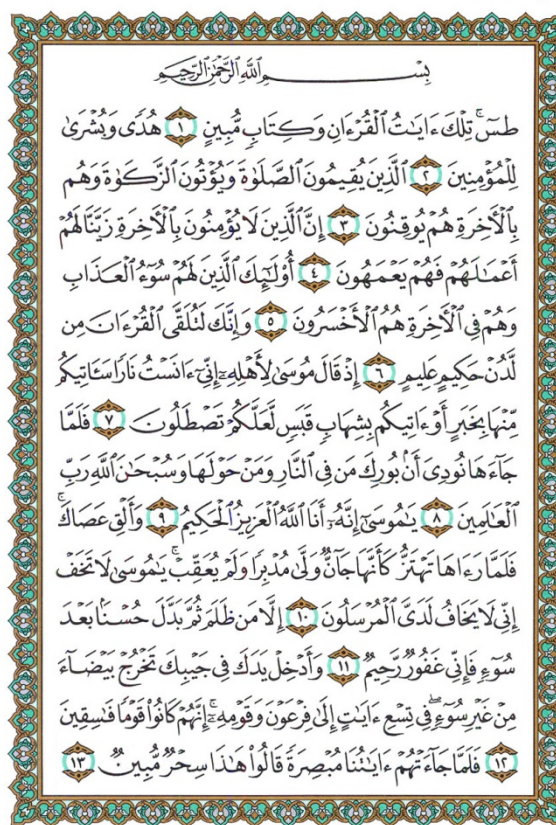 بِسْمِ اللَّهِ الرَّحْمَٰنِ الرَّحِيمِ
طسٓۚ تِلْكَ ءَايَٰتُ الْقُرْءَانِ وَكِتَابٍ مُّبِينٍ ١ هُدًى وَبُشْرَىٰ
لِلْمُؤْمِنِينَ ٢ الَّذِينَ يُقِيمُونَ الصَّلَوٰةَ وَيُؤْتُونَ الزَّكَوٰةَ وَهُم
بِالْأَخِرَةِ هُمْ يُوقِنُونَ ٣ إِنَّ الَّذِينَ لَا يُؤْمِنُونَ بِالْأَخِرَةِ زَيَّنَّا لَهُمْ
أَعْمَٰلَهُمْ فَهُمْ يَعْمَهُونَ ٤ أُوْلَٰٓئِكَ الَّذِينَ لَهُمْ سُوٓءُ الْعَذَابِ
وَهُمْ فِي الْأَخِرَةِ هُمُ الْأَخْسَرُونَ ٥ وَإِنَّكَ لَتُلَقَّى الْقُرْءَانَ مِن
لَّدُنْ حَكِيمٍ عَلِيمٍ ٦ إِذْ قَالَ مُوسَىٰ لِأَهْلِهِۦٓ إِنِّيٓ ءَانَسْتُ نَارًا سَـَٔاتِيكُم
مِّنْهَا بِخَبَرٍ أَوْ ءَاتِيكُم بِشِهَابٍ قَبَسٍ لَّعَلَّكُمْ تَصْطَلُونَ ٧ فَلَمَّا
جَآءَهَا نُودِيَ أَنۢ بُورِكَ مَن فِي النَّارِ وَمَنْ حَوْلَهَا وَسُبْحَٰنَ اللَّهِ رَبِّ
الْعَٰلَمِينَ ٨ يَٰمُوسَىٰٓ إِنَّهُۥٓ أَنَا اللَّهُ الْعَزِيزُ الْحَكِيمُ ٩ وَأَلْقِ عَصَاكَۚ
فَلَمَّا رَءَاهَا تَهْتَزُّ كَأَنَّهَا جَآنٌّ وَلَّىٰ مُدْبِرًا وَلَمْ يُعَقِّبْۚ يَٰمُوسَىٰ لَا تَخَفْ
إِنِّي لَا يَخَافُ لَدَيَّ الْمُرْسَلُونَ ١٠ إِلَّا مَن ظَلَمَ ثُمَّ بَدَّلَ حُسْنًۢا بَعْدَ
سُوٓءٍ فَإِنِّي غَفُورٌ رَّحِيمٌ ١١ وَأَدْخِلْ يَدَكَ فِي جَيْبِكَ تَخْرُجْ بَيْضَآءَ
مِنْ غَيْرِ سُوٓءٍۖ فِي تِسْعِ ءَايَٰتٍ إِلَىٰ فِرْعَوْنَ وَقَوْمِهِۦٓۚ إِنَّهُمْ كَانُوا۟ قَوْمًا فَٰسِقِينَ
١٢ فَلَمَّا جَآءَتْهُمْ ءَايَٰتُنَا مُبْصِرَةً قَالُوا۟ هَٰذَا سِحْرٌ مُّبِينٌ ١٣